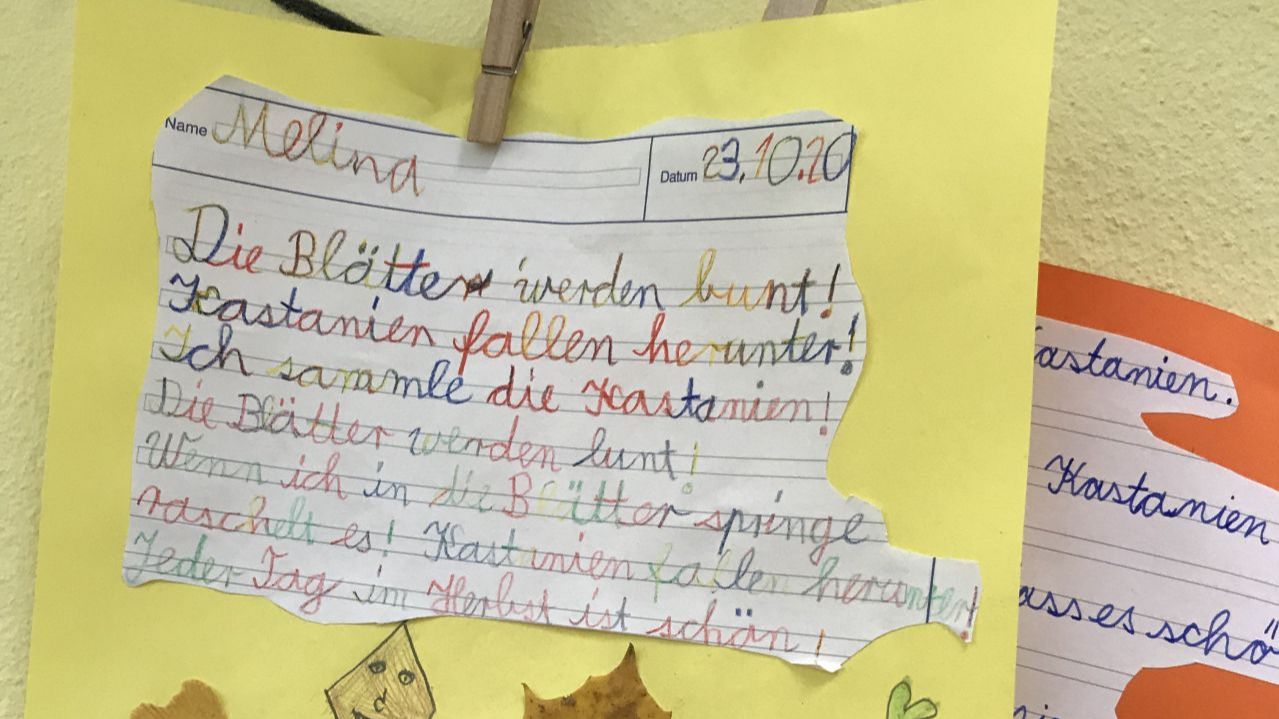 Name Melina Datum 23.10.20
Die Blätter werden bunt!
Kastanien fallen herunter!
Ich sammle die Kastanien!
Die Blätter werden bunt!
Wenn ich in die Blätter springe
raschelt es! Kastanien fallen herunter!
Jeder Tag im Herbst ist schön!
astanien.
Kastanien
ass es schö